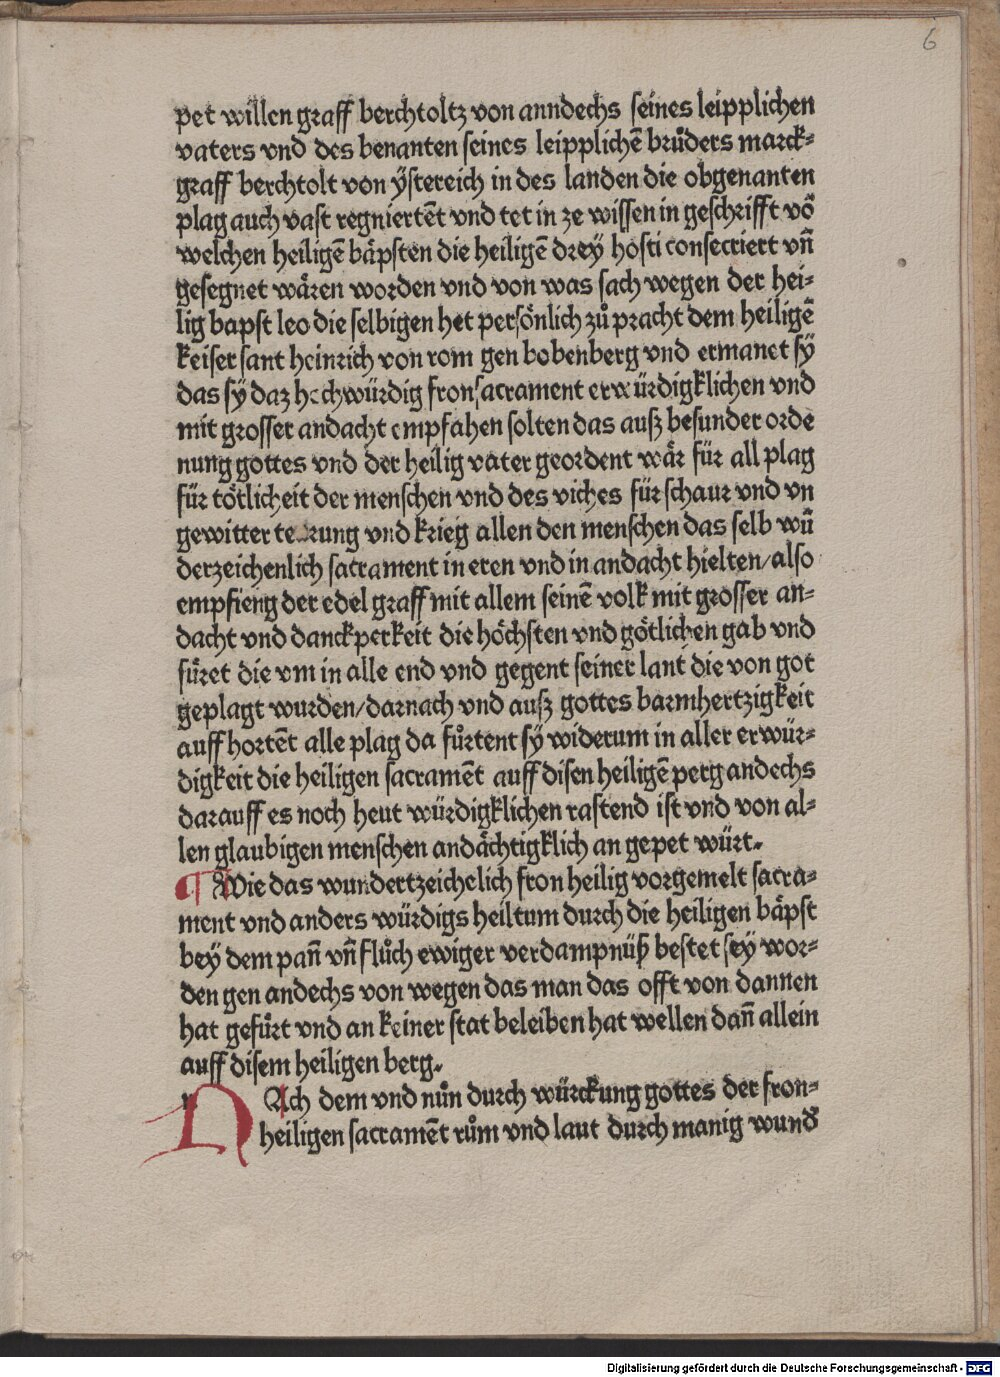 6
pet willen graff berchtoltz von anndechs seines leipplichen
vaters vnd des benanten seines leipplichē brůders marck⸗
graff berchtolt von ÿstereich in des landen die obgenanten
plag auch vast regniertēt vnd tet in ze wissen in geschrifft vō
welchen heiligē bäpsten die heiligē dreÿ hosti consecriert vñ
gesegnet wären worden vnd von was sach wegen der hei⸗
lig bapst leo die selbigen het persönlich zů pracht dem heiligē
keiser sant heinrich von rom gen bobenberg vnd ermanet sÿ
das sÿ daz hochwürdig fron sacrament erwürdigklichen vnd
mit grosser andacht empfahen solten das auß besunder orde
nung gottes vnd der heilig vater geordent wär für all plag
für tötlicheit der menschen vnd des viches für schaur vnd vn
gewitter vnd krieg allen den menschen das selb wū
derzeichenlich sacrament in eren vnd in andacht hielten/also
empfieng der edel graff mit allem seinē volk mit grosser an⸗
dacht vnd danckperkeit die höchsten vnd götlichen gab vnd
füret die vm in alle end vnd gegent seiner lant die von got
geplagt wurden/darnach vnd auß gottes barmhertzigkeit
auff hortēt alle plag da fůrtent sÿ widerum in aller erwür⸗
digkeit die heiligen sacramēt auff disen heiligē perg andechs
darauff es noch heut würdigklichen rastend ist vnd von al⸗
len glaubigen menschen andächtigklich an gepet würt.
¶ Wie das wundertzeichelich fron heilig vorgemelt sacra⸗
ment vnd anders würdigs heiltum durch die heiligen bäpst
bey dem pañ vñ flůch ewiger verdampnüß bestet sey wor⸗
den gen andechs von wegen das man das offt von dannen
hat gefürt vnd an keiner stat beleiben hat wellen dañ allein
auff disem heiligen berg.
NAch dem vnd nůn durch würckung gottes der fron⸗
heiligen sacramēt rům vnd laut durch manig wund̉
Digitalisierung gefördert durch die Deutsche Forschungsgemeinschaft - DFG